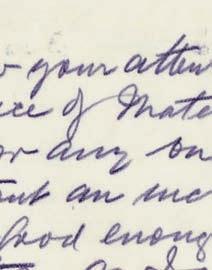 your atten
ce of Mate
or any on
but an inc
Good enoug